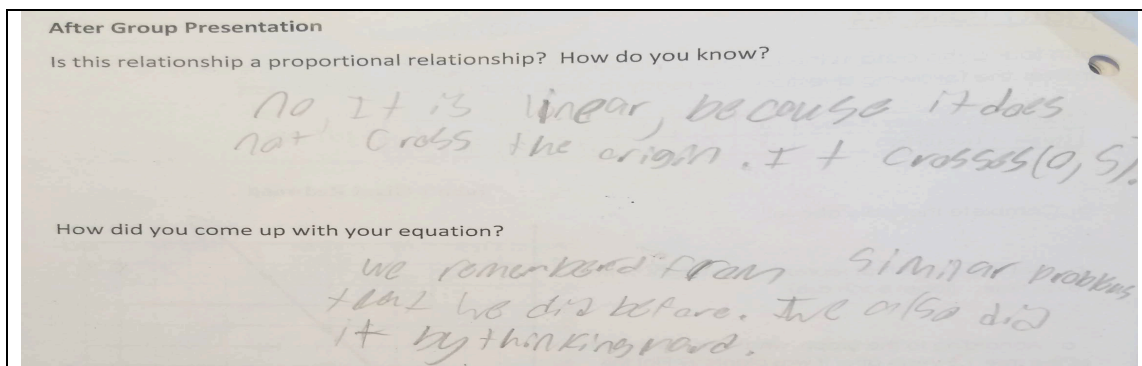 After Group Presentation
Is this relationship a proportional relationship? How do you know?
no, It is linear, because it does
not cross the origin. It crosses (0, 5).
How did you come up with your equation?
we remembered from similar problems
that we did before. We also did
it by thinking hard.